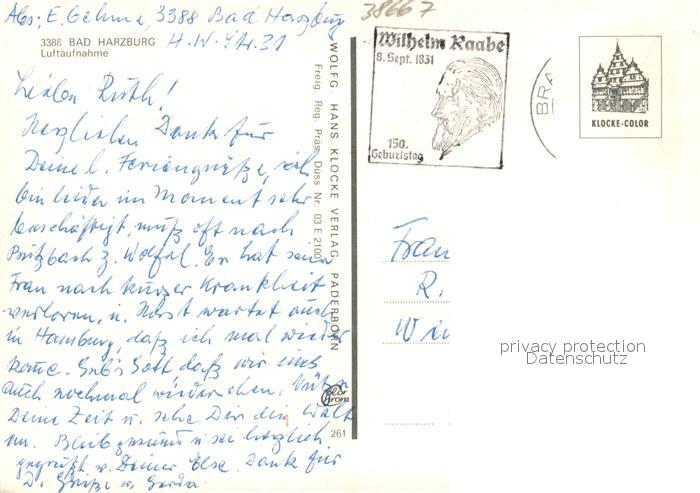 Abs: E. Gehme, 3388 Bad Harzburg
H.-W.-Str. 31
3388 BAD HARZBURG
Luftaufnahme
Liebe Ruth!
Herzlichen Dank für
Deine l. Feriengrüße, ich
bin leider im Moment sehr
beschäftigt, muß oft nach
Butzbach z. Wolfgl. Er hat seine
Frau nach kurzer Krankheit
verloren, u. Horst wartet auch
in Hamburg, daß ich mal wieder
komme. Geb's Gott daß wir uns
auch nochmal wiedersehen. Nütze
Deine Zeit u. sehe Dir die Welt
an. Bleib gesund u. sei herzlich
gegrüßt v. Deiner Else. Dank für
D. Grüße v. Gerda.
WOLFG. HANS KLOCKE VERLAG, PADERBORN
Freig. Reg. Präs. Düss. Nr. 03 E 2100
Color
chrom
261
38667
Wilhelm Raabe
8. Sept. 1831
150.
Geburtstag
BRA
KLOCKE-COLOR
Frau
R.
privacy protection
Datenschutz